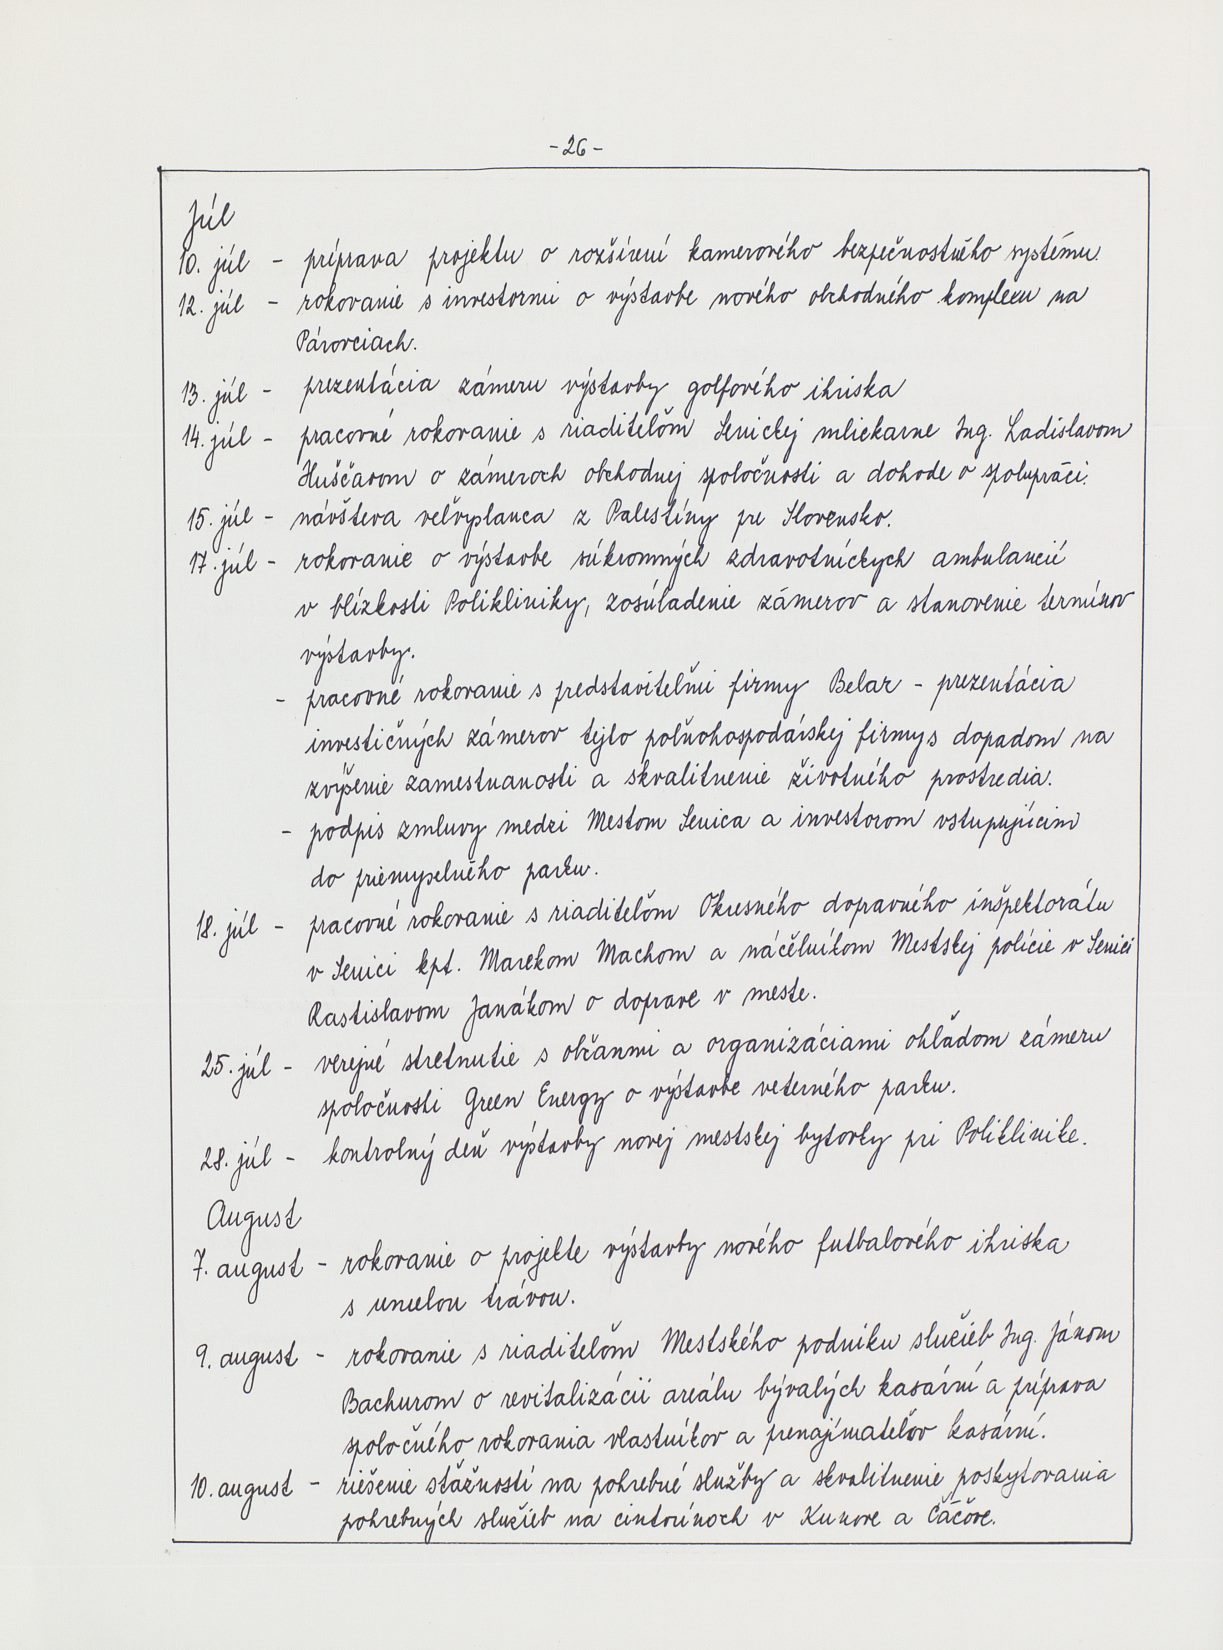 -26-
Júl
10. júl - príprava projektu o rozšírení kamerového bezpečnostného systému.
12. júl - rokovanie s investormi o výstavbe nového obchodného komplexu na
Párovciach.
13. júl - prezentácia zámeru výstavby golfového ihriska
14. júl - pracovné rokovanie s riaditeľom Senickej mliekarne Ing. Ladislavom
Huščavom o zámeroch obchodnej spoločnosti a dohode o spolupráci.
15. júl - návšteva veľvyslanca z Palestíny pre Slovensko.
17. júl - rokovanie o výstavbe súkromných zdravotníckych ambulancií
v blízkosti Polikliniky, zosúladenie zámerov a stanovenie termínov
výstavby.
- pracovné rokovanie s predstaviteľmi firmy Belar - prezentácia
investičných zámerov tejto poľnohospodárskej firmy s dopadom na
zvýšenie zamestnanosti a skvalitnenie životného prostredia.
- podpis zmluvy medzi Mestom Senica a investorom vstupujúcim
do priemyselného parku.
18. júl - pracovné rokovanie s riaditeľom Okresného dopravného inšpektorátu
v Senici kpt. Marekom Machom a náčelníkom Mestskej polície v Senici
Rastislavom Janákom o doprave v meste.
25. júl - verejné stretnutie s občanmi a organizáciami ohľadom zámeru
spoločnosti Green Energy o výstavbe veterného parku.
28. júl - kontrolný deň výstavby novej mestskej bytovky pri Poliklinike.
August
7. august - rokovanie o projekte výstavby nového futbalového ihriska
s umelou trávou.
9. august - rokovanie s riaditeľom Mestského podniku služieb Ing. Jánom
Bachurom o revitalizácii areálu bývalých kasární a príprava
spoločného rokovania vlastníkov a prenajímateľov kasární.
10. august - riešenie stážností na pohrebné služby a skvalitnenie poskytovania
pohrebných služieb na cintorínoch v Kunove a Čáčove.